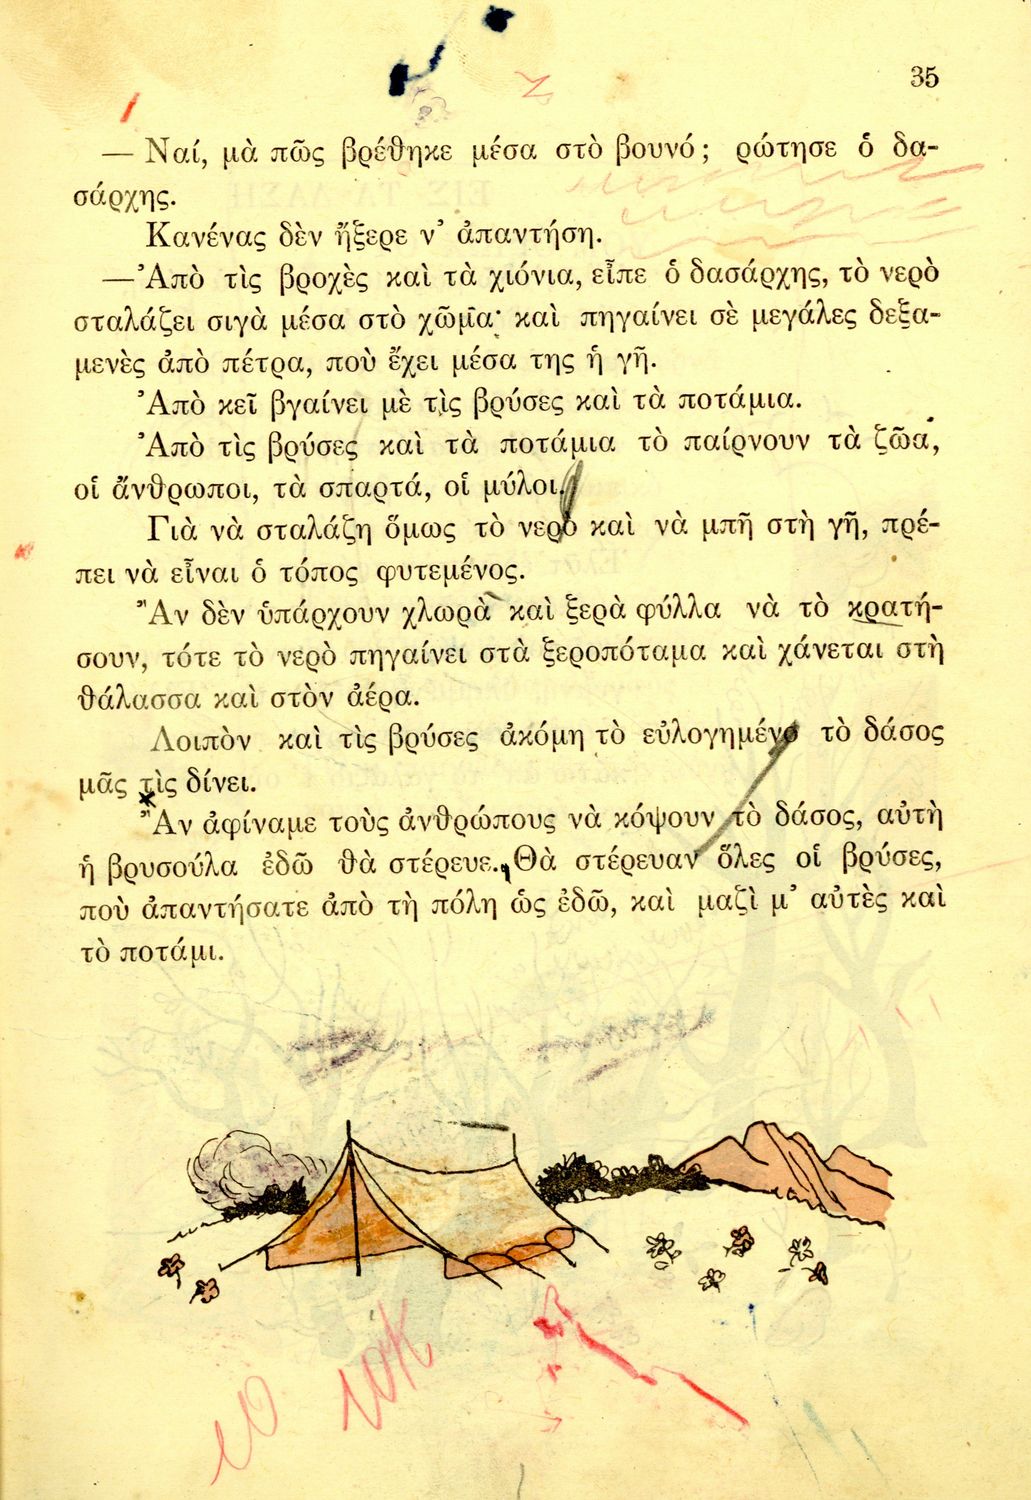 35
— Ναί, μὰ πῶς βρέθηκε μέσα στὸ βουνό; ρώτησε ὁ δα-
σάρχης.
Κανένας δὲν ἤξερε ν' ἀπαντήση.
—Ἀπὸ τὶς βροχὲς καὶ τὰ χιόνια, εἶπε ὁ δασάρχης, τὸ νερὸ
σταλάζει σιγὰ μέσα στὸ χῶμα· καὶ πηγαίνει σὲ μεγάλες δεξα-
μενὲς ἀπὸ πέτρα, ποὺ ἔχει μέσα της ἡ γῆ.
Ἀπὸ κεῖ βγαίνει μὲ τὶς βρύσες καὶ τὰ ποτάμια.
Ἀπὸ τὶς βρύσες καὶ τὰ ποτάμια τὸ παίρνουν τὰ ζῶα,
οἱ ἄνθρωποι, τὰ σπαρτά, οἱ μύλοι.
Γιὰ νὰ σταλάζη ὅμως τὸ νερὸ καὶ νὰ μπῆ στὴ γῆ, πρέ-
πει νὰ εἶναι ὁ τόπος φυτεμένος.
Ἂν δὲν ὑπάρχουν χλωρὰ καὶ ξερὰ φύλλα νὰ τὸ κρατή-
σουν, τότε τὸ νερὸ πηγαίνει στὰ ξεροπόταμα καὶ χάνεται στὴ
θάλασσα καὶ στὸν ἀέρα.
Λοιπὸν καὶ τὶς βρύσες ἀκόμη τὸ εὐλογημένο τὸ δάσος
μᾶς τὶς δίνει.
Ἂν ἀφίναμε τοὺς ἀνθρώπους νὰ κόψουν τὸ δάσος, αὐτὴ
ἡ βρυσούλα ἐδῶ θὰ στέρευε. Θὰ στέρευαν ὅλες οἱ βρύσες,
ποὺ ἀπαντήσατε ἀπὸ τὴ πόλη ὡς ἐδῶ, καὶ μαζὶ μ' αὐτὲς καὶ
τὸ ποτάμι.